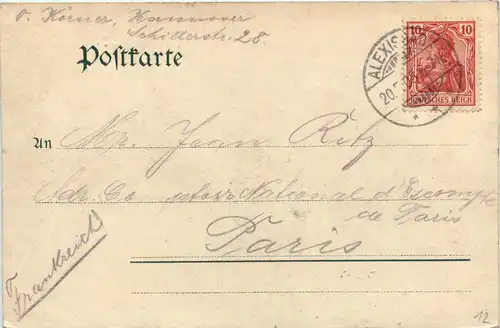 v. Körner, Hannover
Schillerstr. 28.
Postkarte
10 10
DEUTSCHES REICH
ALEXIS
20.5.
An Mr. Jean Ritz
Adr. Comptoir National d'Escompte
de Paris
Paris
Frankreich
12